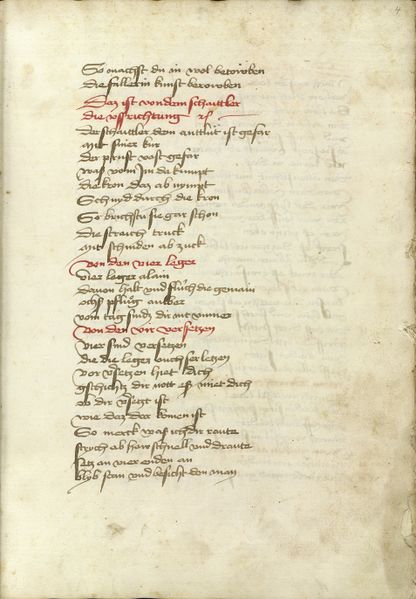 4
So machst du in wol betöwben
die fäller in kunst beröwben
Daz ist von dem schaittler
die vssrichtung rc
der schaittler dem antlut ist gefar
mit siner kur
der prust vast gefar
was vom Im da kumpt
die kron daz ab nympt
Schnyd durch die kron
So brichstu sie gar schon
die straich truck
mit schniden ab zuck
Von den vier leger
vier leger alain
davon halt und fluch die gemain
ochs pflug alber
vom tag sindz dir nit unmer
Von den vier versetzen
vier sind versetzen
die die leger ouch ser letzen
vor vsetzen hiet dich
gschicht dir nott es miet dich
ob dir vsetzt ist
wie daz dar komen ist
So merck was ich dir raute
strych ab haw schnell und draute
setz an vier enden an
blyb stan und besicht den man